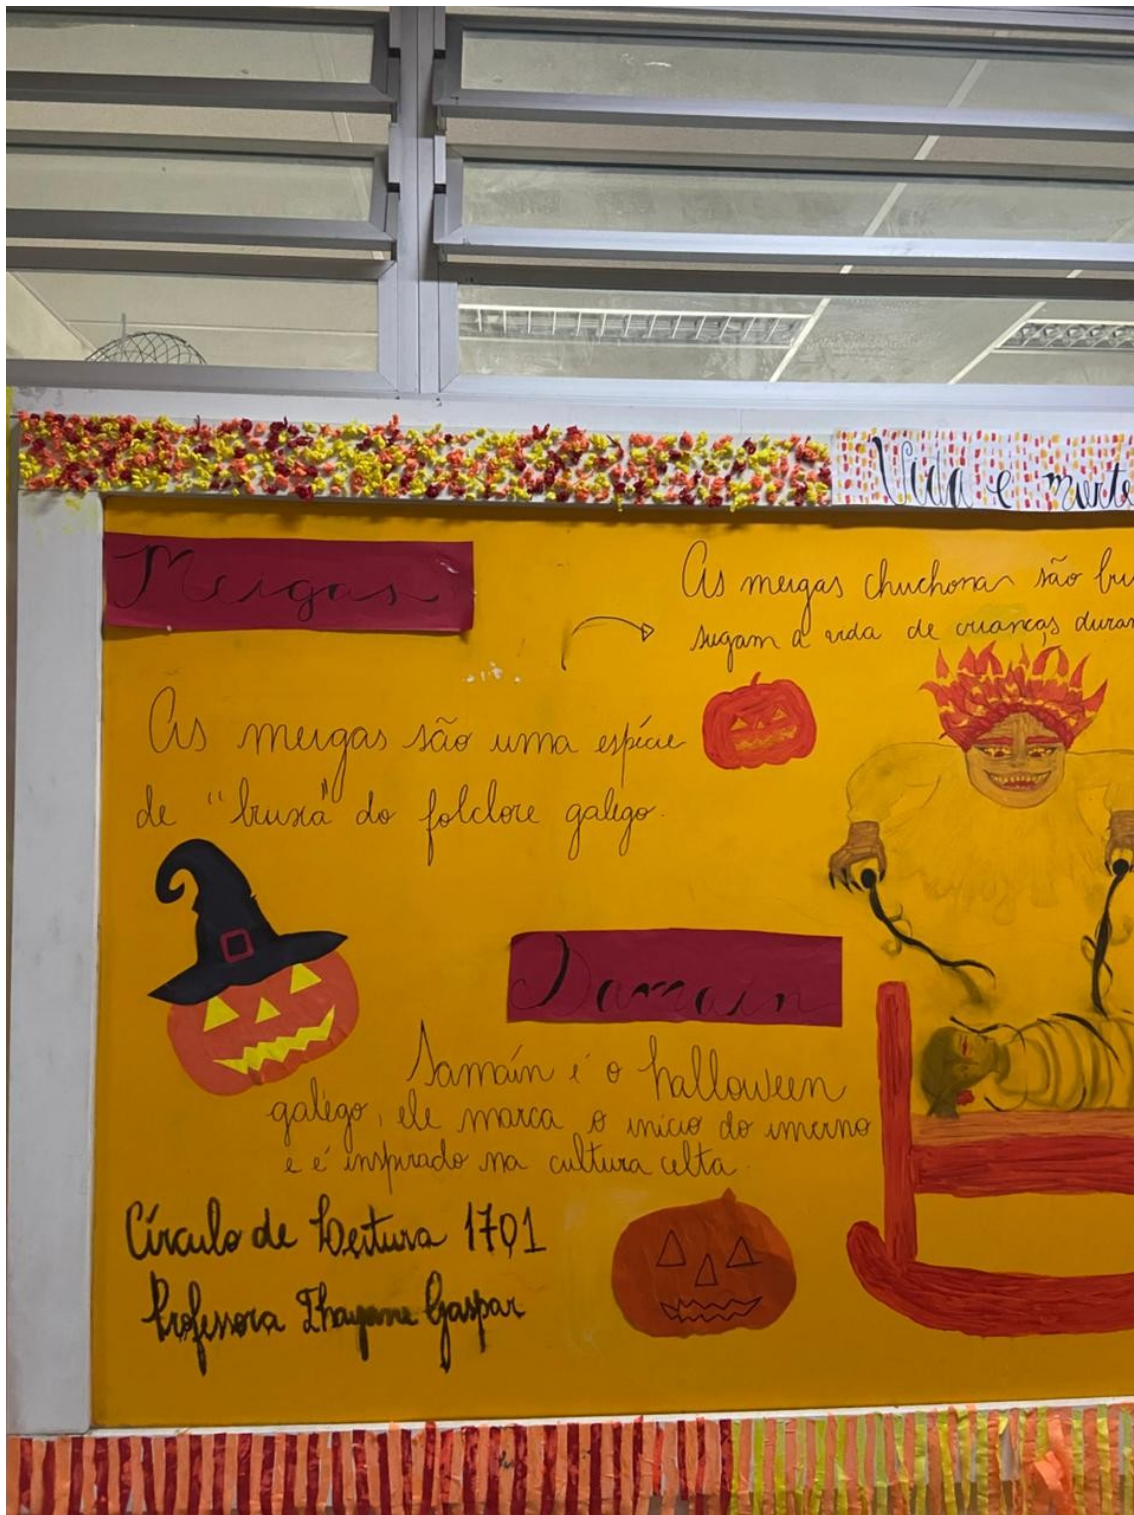 Vida e morte
Meigas
As meigas chuchona são bru
sugam a vida de crianças duran
As meigas são uma espécie
de "bruxa" do folclore galego.
Samaín
Samaín é o halloween
galego, ele marca o início do inverno
e é inspirado na cultura celta.
Círculo de Leitura 1701
Professora Thayane Gaspar